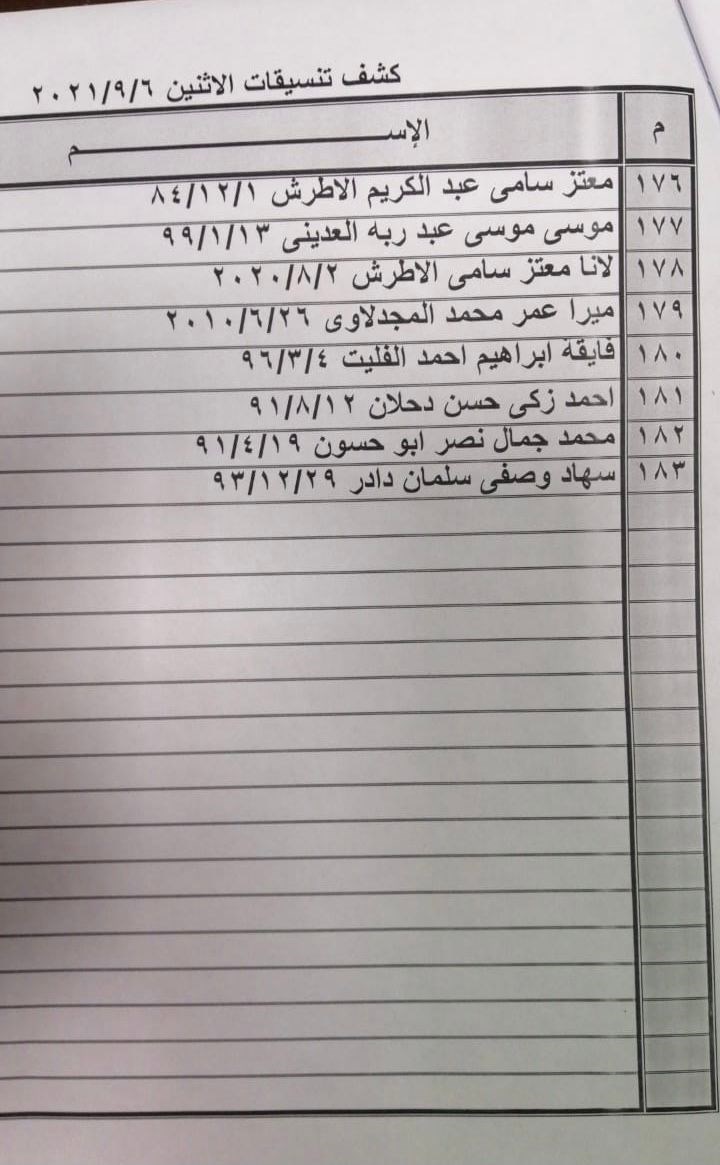 كشف تنسيقات الاثنين ٢٠٢١/٩/٦
م الإســـــــم
١٧٦ معتز سامى عبد الكريم الاطرش ٨٤/١٢/١
١٧٧ موسى موسى عبد ربه العدينى ٩٩/١/١٣
١٧٨ لانا معتز سامى الاطرش ٢٠٢٠/٨/٢
١٧٩ ميرا عمر محمد المجدلاوى ٢٠١٠/٦/٢٦
١٨٠ فايقة ابراهيم احمد الفليت ٩٦/٣/٤
١٨١ احمد زكى حسن دحلان ٩١/٨/١٢
١٨٢ محمد جمال نصر ابو حسون ٩١/٤/١٩
١٨٣ سهاد وصفى سلمان دادر ٩٣/١٢/٢٩